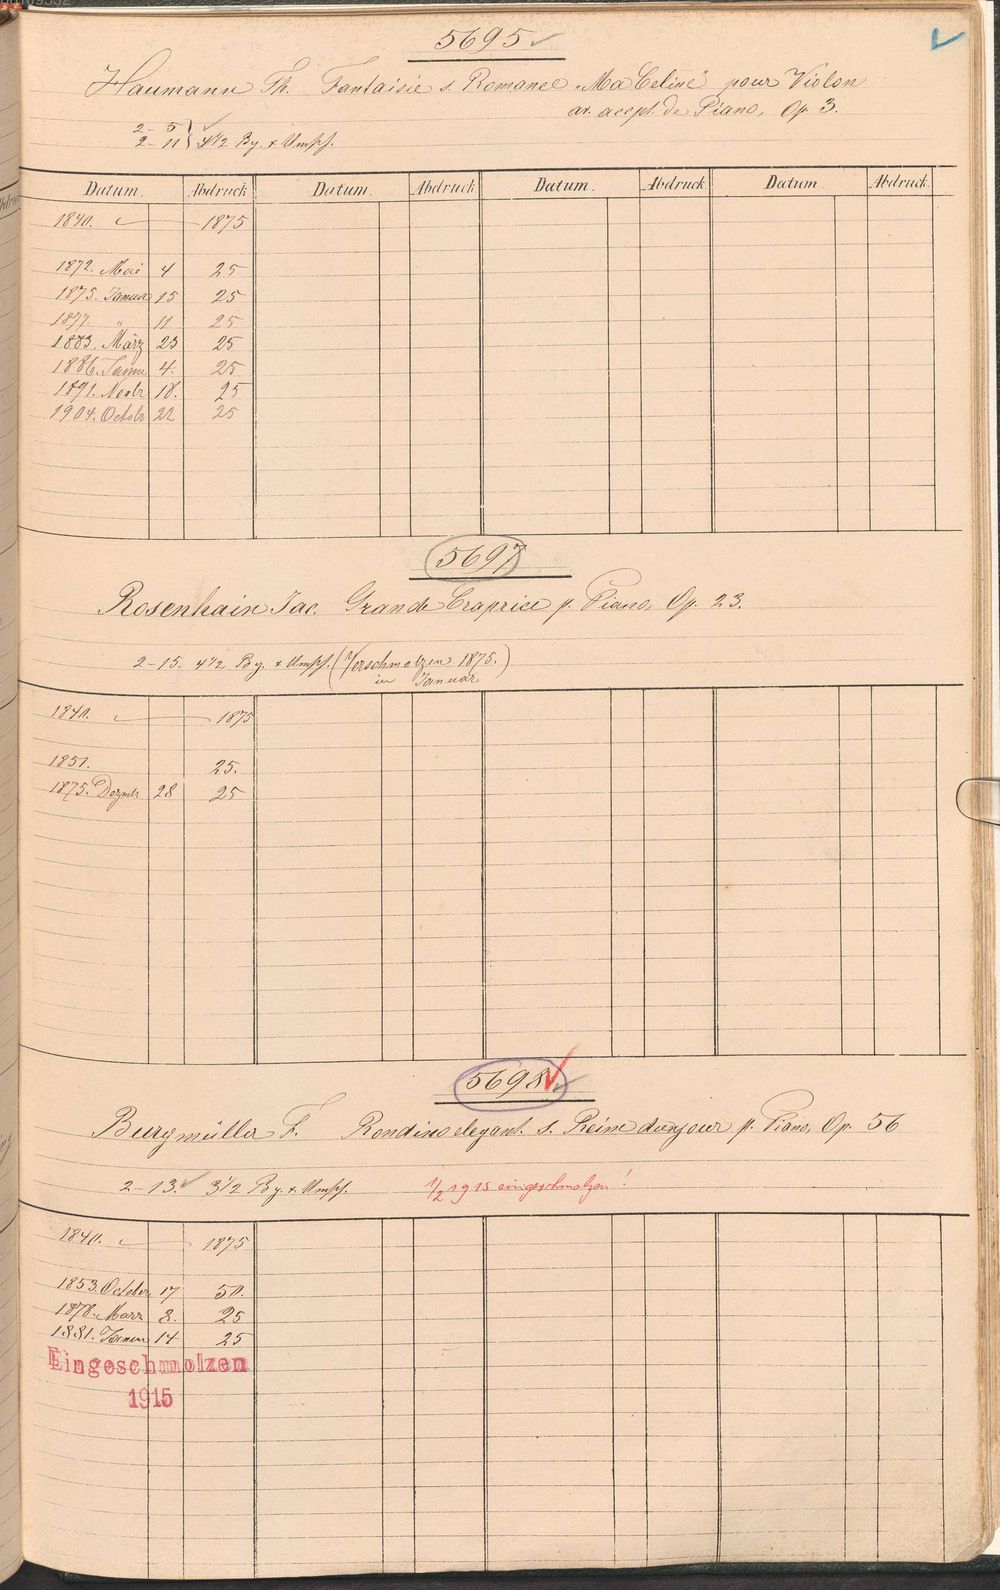 5695
Haumann Th. Fantaisie s. Romance „Ma Celine" pour Violon
av. accpt. de Piano, Op. 3.
2 – 5
2 – 11 4 1/2 Bg. + Umschl.
Datum. Abdruck Datum. Abdruck Datum. Abdruck Datum Abdruck.
1840. 1875
1872. Mai 4 25
1875. Januar 15 25
1877. „ 11 25
1883. März 23 25
1886. Janu 4. 25
1891. Novbr 18. 25
1904. Octobr 22 25
5697
Rosenhain Jac. Grande Caprice p. Piano, Op. 23.
2–15. 4 1/2 Bg. + Umschl. (Verschmolzen 1875.)
in Januar
1840. 1875
1851. 25.
1875. Dezmbr 28 25
5698
Burgmüller F. Rondino elegant s. Reine d'un jour p. Piano, Op. 56
2–13. 3 1/2 Bg. + Umschl. 1/2 1915 eingeschmolzen!
1840. 1875
1853. October 17 50.
1878. März 8. 25
1881. Janua 14 25
Eingeschmolzen
1915